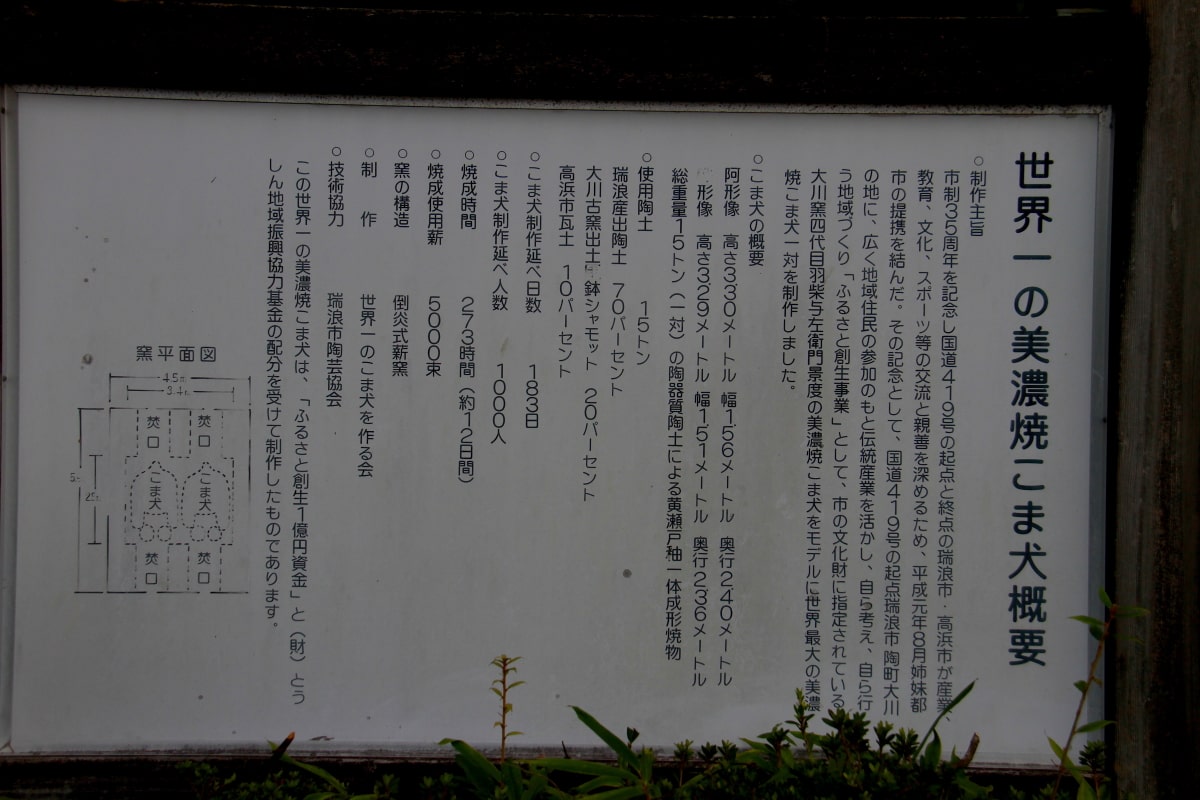 世界一の美濃焼こま犬概要
○制作主旨
市制35周年を記念し国道419号の起点と終点の瑞浪市・高浜市が産業、
教育、文化、スポーツ等の交流と親善を深めるため、平成元年8月姉妹都
市の提携を結んだ。その記念として、国道419号の起点瑞浪市陶町大川
の地に、広く地域住民の参加のもと伝統産業を活かし、自ら考え、自ら行
う地域づくり「ふるさと創生事業」として、市の文化財に指定されている
大川窯四代目羽柴与左衛門景度の美濃焼こま犬をモデルに世界最大の美濃
焼こま犬一対を制作しました。
○こま犬の概要
阿形像 高さ330メートル 幅156メートル 奥行240メートル
形像 高さ329メートル 幅151メートル 奥行236メートル
総重量15トン(一対)の陶器質陶土による黄瀬戸釉一体成形焼物
○使用陶土 15トン
瑞浪産出陶土 70パーセント
大川古窯出土鉢シャモット 20パーセント
高浜市瓦土 10パーセント
○こま犬制作延べ日数 183日
○こま犬制作延べ人数 1000人
○焼成時間 273時間(約12日間)
○焼成使用薪 5000束
○窯の構造 倒炎式薪窯
○制作 世界一のこま犬を作る会
○技術協力 瑞浪市陶芸協会
この世界一の美濃焼こま犬は、「ふるさと創生1億円資金」と(財)とう
しん地域振興協力基金の配分を受けて制作したものであります。
窯平面図
4.5m
3.4m
焚口
焚口
こま犬
こま犬
焚口
焚口